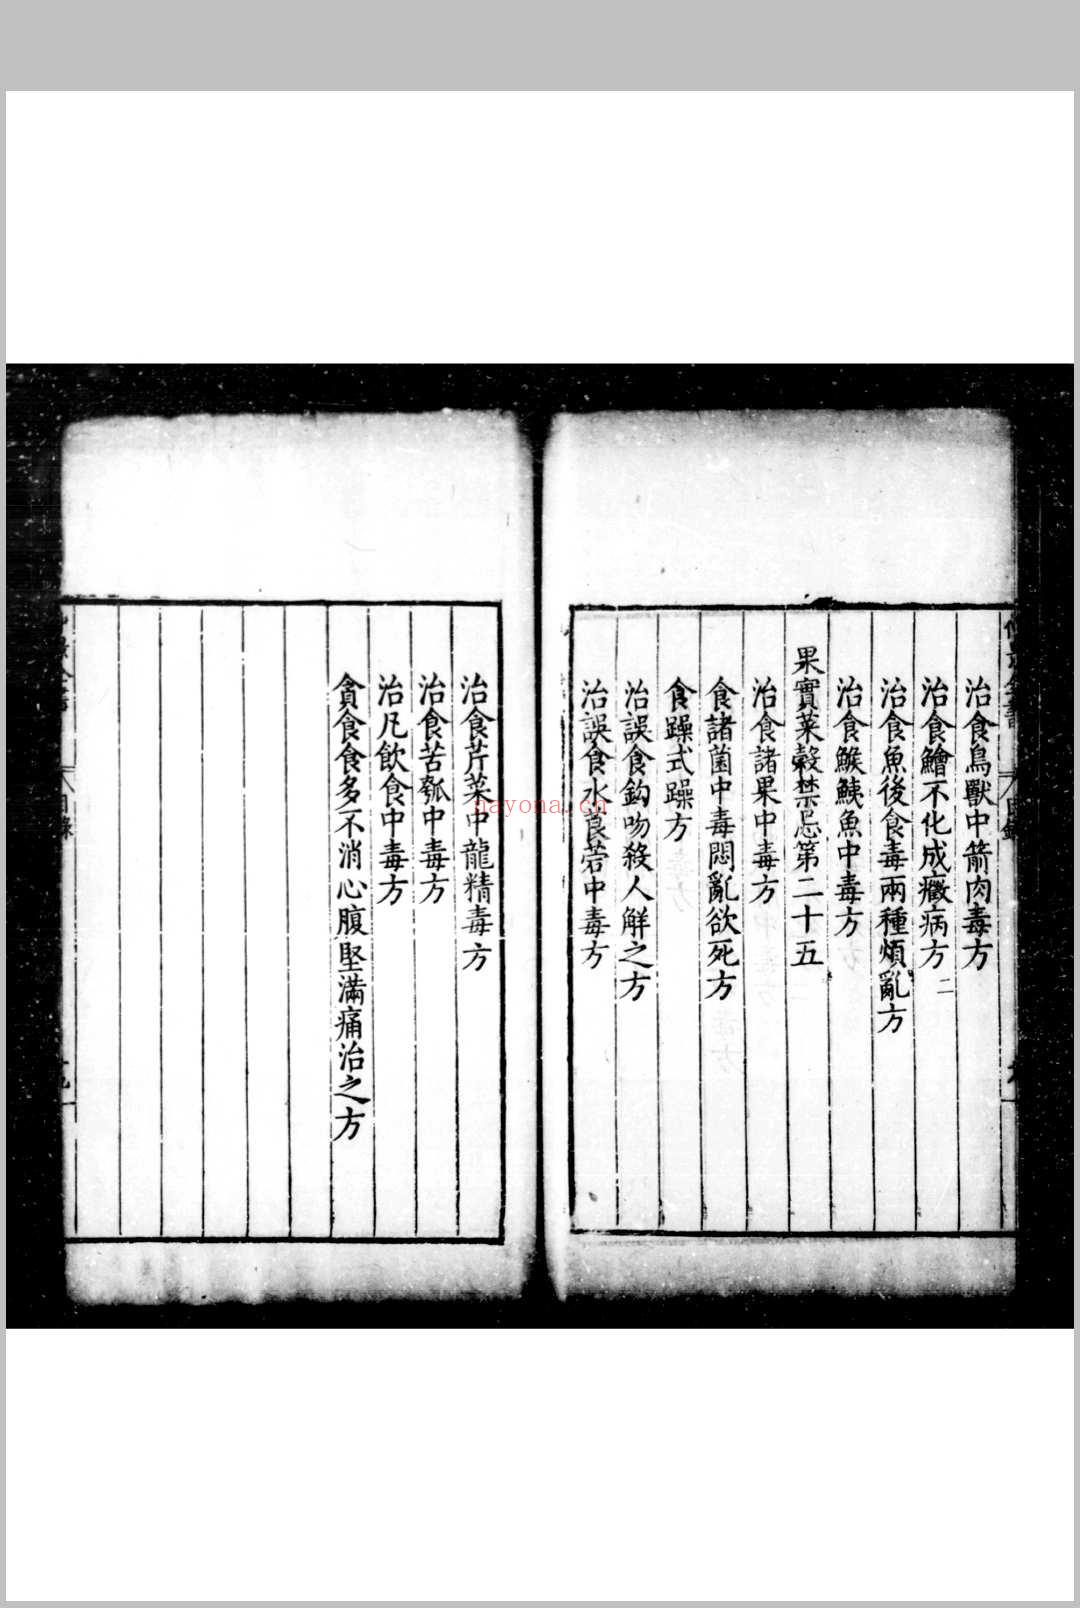 治食鳥獸中箭肉毒方
治食鱠不化成癥病方二
治食魚後食毒兩種煩亂方
治食鯸鮧魚中毒方
果實菜穀禁忌第二十五
治食諸果中毒方
食諸菌中毒悶亂欲死方
食躁式躁方
治誤食鈎吻殺人解之方
治誤食水莨菪中毒方
治食芹菜中龍精毒方
治食苦瓠中毒方
治凡飲食中毒方
貪食食多不消心腹堅滿痛治之方
nayona.cn